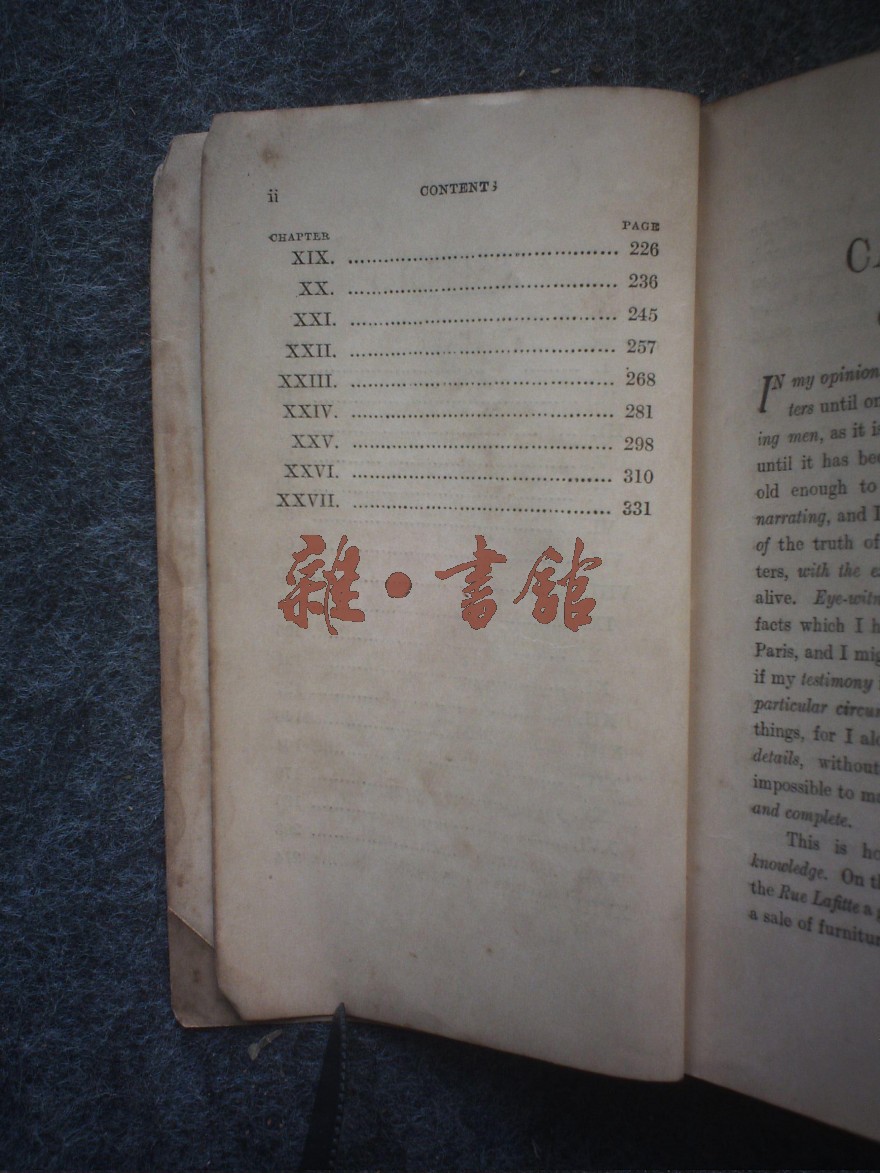 ii CONTENTS
CHAPTER PAGE
XIX. 226
XX. 236
XXI. 245
XXII. 257
XXIII. 268
XXIV. 281
XXV. 298
XXVI. 310
XXVII. 331
雜·書館
IN my opinion
ters until
ing men, as it
until it has
old enough to
narrating, and I
of the truth of
ters, with the
alive. Eye-
facts which I
Paris, and I
if my testimony
particular
things, for I
details, without
impossible to
and complete.
This is
knowledge. On
the Rue Lafitte a
a sale of